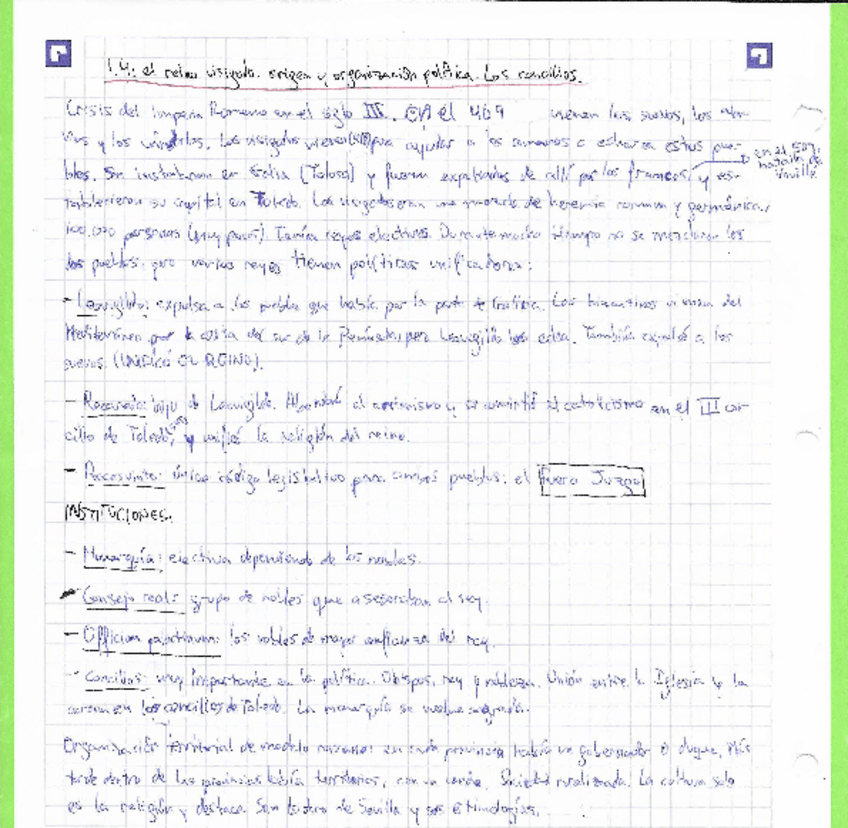 1.4: el reino visigodo. origen y organización política. Los concilios.
Crisis del Imperio Romano en el siglo III. En el 409 vienen los suevos, los ala-
nos y los vándalos. Los visigodos vienen para ayudar a los romanos a echar a estos pue-
blos. Se instalaron en Galia (Tolosa) y fueron expulsados de allí por los francos, y es-
en el 507, batalla de Vouillé
tablecieron su capital en Toledo. Los visigodos eran una de herencia romana y germánica,
100.000 personas (muy pocos). Tenían reyes electivos. Durante mucho tiempo no se mezclaron los
los pueblos, pero varios reyes tienen políticas unificadoras:
- Leovigildo: expulsa a los pueblos que había por la parte de Los bizantinos del
Mediterráneo por la costa del sur de la Península pero Leovigildo los echa. También expulsó a los
suevos. (UNIFICÓ EL REINO).
- Recaredo: hijo de Leovigildo. Abandonó el arrianismo y se convirtió al catolicismo en el III con-
cilio de Toledo, y unificó la religión del reino.
- Recesvinto: único código legislativo para ambos pueblos: el Fuero Juzgo
INSTITUCIONES.
- Monarquía: electiva dependiendo de los nobles.
- Consejo real: grupo de nobles que asesoraban al rey.
- Officium palatinum: los nobles de mayor confianza del rey.
- Concilios: muy importante en la política. Obispos, rey y nobleza. Unión entre la Iglesia y la
corona en los concilios de Toledo. La monarquía se vuelve sagrada.
Organización territorial de modelo romano: en cada provincia habría un gobernador o duque. Más
tarde dentro de las provincias habría territorios, con un conde. Sociedad ruralizada. La cultura solo
es la religión y destaca San Isidro de Sevilla y sus Etimologías.